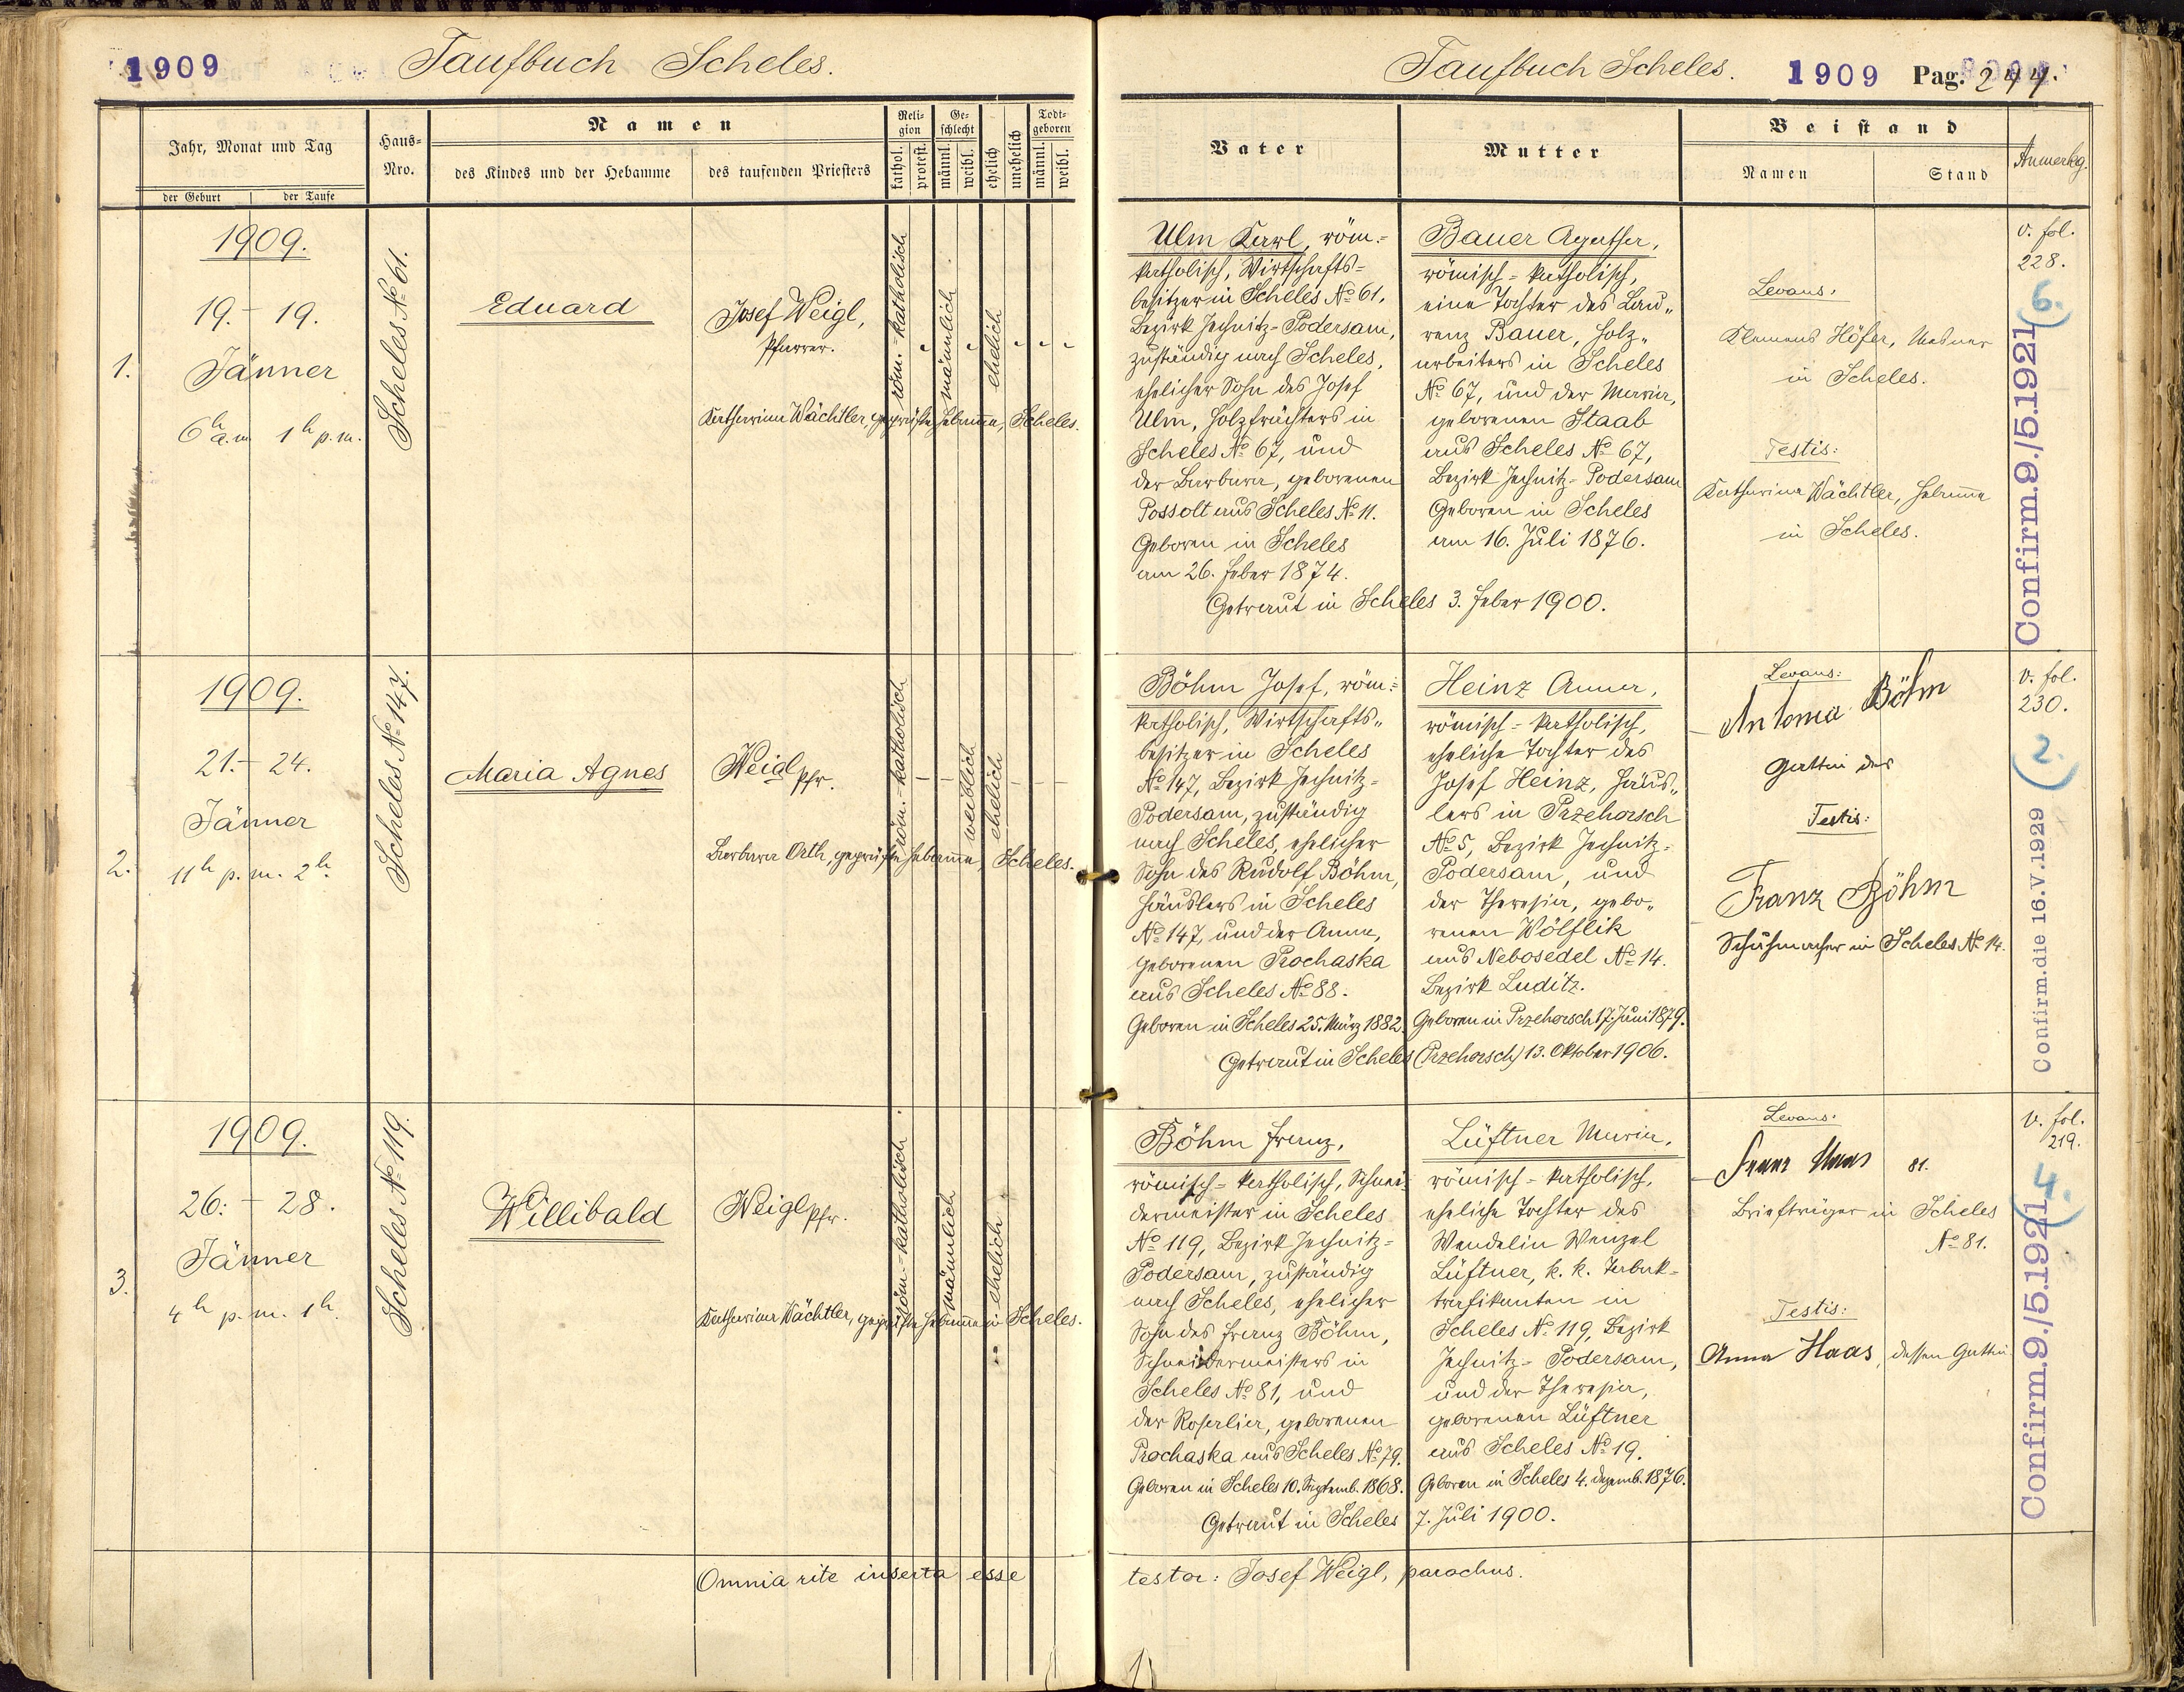 1909
Taufbuch Scheles.
Jahr, Monat und Tag
der Geburt
der Taufe
Haus-
Nro.
Namen
des Kindes und der Hebamme
des taufenden Priesters
Reli-
gion
kathol.
protest.
Ge-
schlecht
männl.
weibl.
ehelich
unehelich
Todt-
geboren
männl.
weibl.
1.
1909.
19. - 19.
Jänner
6h a.m. 1h p.m.
Scheles No 61.
Eduard
Josef Weigl,
Pfarrer.
röm.-katholisch
männlich
ehelich
Katharina Wächtler, geprüfte Hebamme, Scheles.
2.
1909.
21. - 24.
Jänner
11h p.m. 2h.
Scheles No 147.
Maria Agnes
Weigl Pfr.
röm.-katholisch
weiblich
ehelich
Barbara Orth, geprüfte Hebamme, Scheles.
3.
1909.
26. - 28.
Jänner
4h p.m. 1h.
Scheles No 119.
Willibald
Weigl Pfr.
röm.-katholisch
männlich
ehelich
Katharina Wächtler, geprüfte Hebamme in Scheles.
Omnia rite inserta esse
Taufbuch Scheles.
1909 Pag. 244.
Vater
Mutter
Beistand
Namen
Stand
Anmerkg.
Ulm Karl, röm.-
katholisch, Wirtschafts-
besitzer in Scheles No 61,
Bezirk Jechnitz-Podersam,
zuständig nach Scheles,
ehelicher Sohn des Josef
Ulm, Holzfrächters in
Scheles No 67, und
der Barbara, geborenen
Possolt aus Scheles No 11.
Geboren in Scheles
am 26. Feber 1874.
Bauer Agatha,
römisch-katholisch,
eine Tochter des Lau„
renz Bauer, Holz„
arbeiters in Scheles
No 67, und der Maria,
geborenen Staab
aus Scheles No 67,
Bezirk Jechnitz-Podersam
Geboren in Scheles
am 16. Juli 1876.
Getraut in Scheles 3. Feber 1900.
Levans:
Klemens Höfer, Mesner
in Scheles.
Testis:
Katharina Wächtler, Hebamme
in Scheles.
v. fol.
228.
6.
Confirm. 9./5.1921
Böhm Josef, röm.-
katholisch, Wirtschafts„
besitzer in Scheles
No 147, Bezirk Jechnitz-
Podersam, zuständig
nach Scheles, ehelicher
Sohn des Rudolf Böhm,
Häuslers in Scheles
No 147, und der Anna,
geborenen Prochaska
aus Scheles No 88.
Geboren in Scheles 25. März 1882.
Heinz Anna,
römisch-katholisch,
eheliche Tochter des
Josef Heinz, Häus„
lers in Przehorsch
No 5, Bezirk Jechnitz-
Podersam, und
der Theresia, gebo„
renen Wölflik
aus Nebosedel No 14.
Bezirk Luditz.
Geboren in Przehorsch 17. Juni 1879.
Getraut in Scheles (Przehorsch) 13. Oktober 1906.
Levans:
Antonia Böhm
Gattin des
Testis:
Franz Böhm
Schuhmacher in Scheles No 14.
v. fol.
230.
2.
Confirm. die 16.V.1929
Böhm Franz,
römisch-katholisch, Schnei-
dermeister in Scheles
No 119, Bezirk Jechnitz-
Podersam, zuständig
nach Scheles, ehelicher
Sohn des Franz Böhm,
Schneidermeisters in
Scheles No 81, und
der Rosalia, geborenen
Prochaska aus Scheles No 79.
Geboren in Scheles 10. Septemb. 1868.
Lüftner Maria,
römisch-katholisch,
eheliche Tochter des
Wendelin Wenzel
Lüftner, k. k. Tabak-
trafikanten in
Scheles No 119, Bezirk
Jechnitz-Podersam,
und der Theresia,
geborenen Lüftner
aus Scheles No 19.
Geboren in Scheles 4. Dezemb. 1876.
Getraut in Scheles 7. Juli 1900.
Levans:
Franz Haas 81.
Briefträger in Scheles
No 81.
Testis:
Anna Haas, dessen Gattin
v. fol.
219.
4.
Confirm. 9./5.1921
testor: Josef Weigl, parochus.